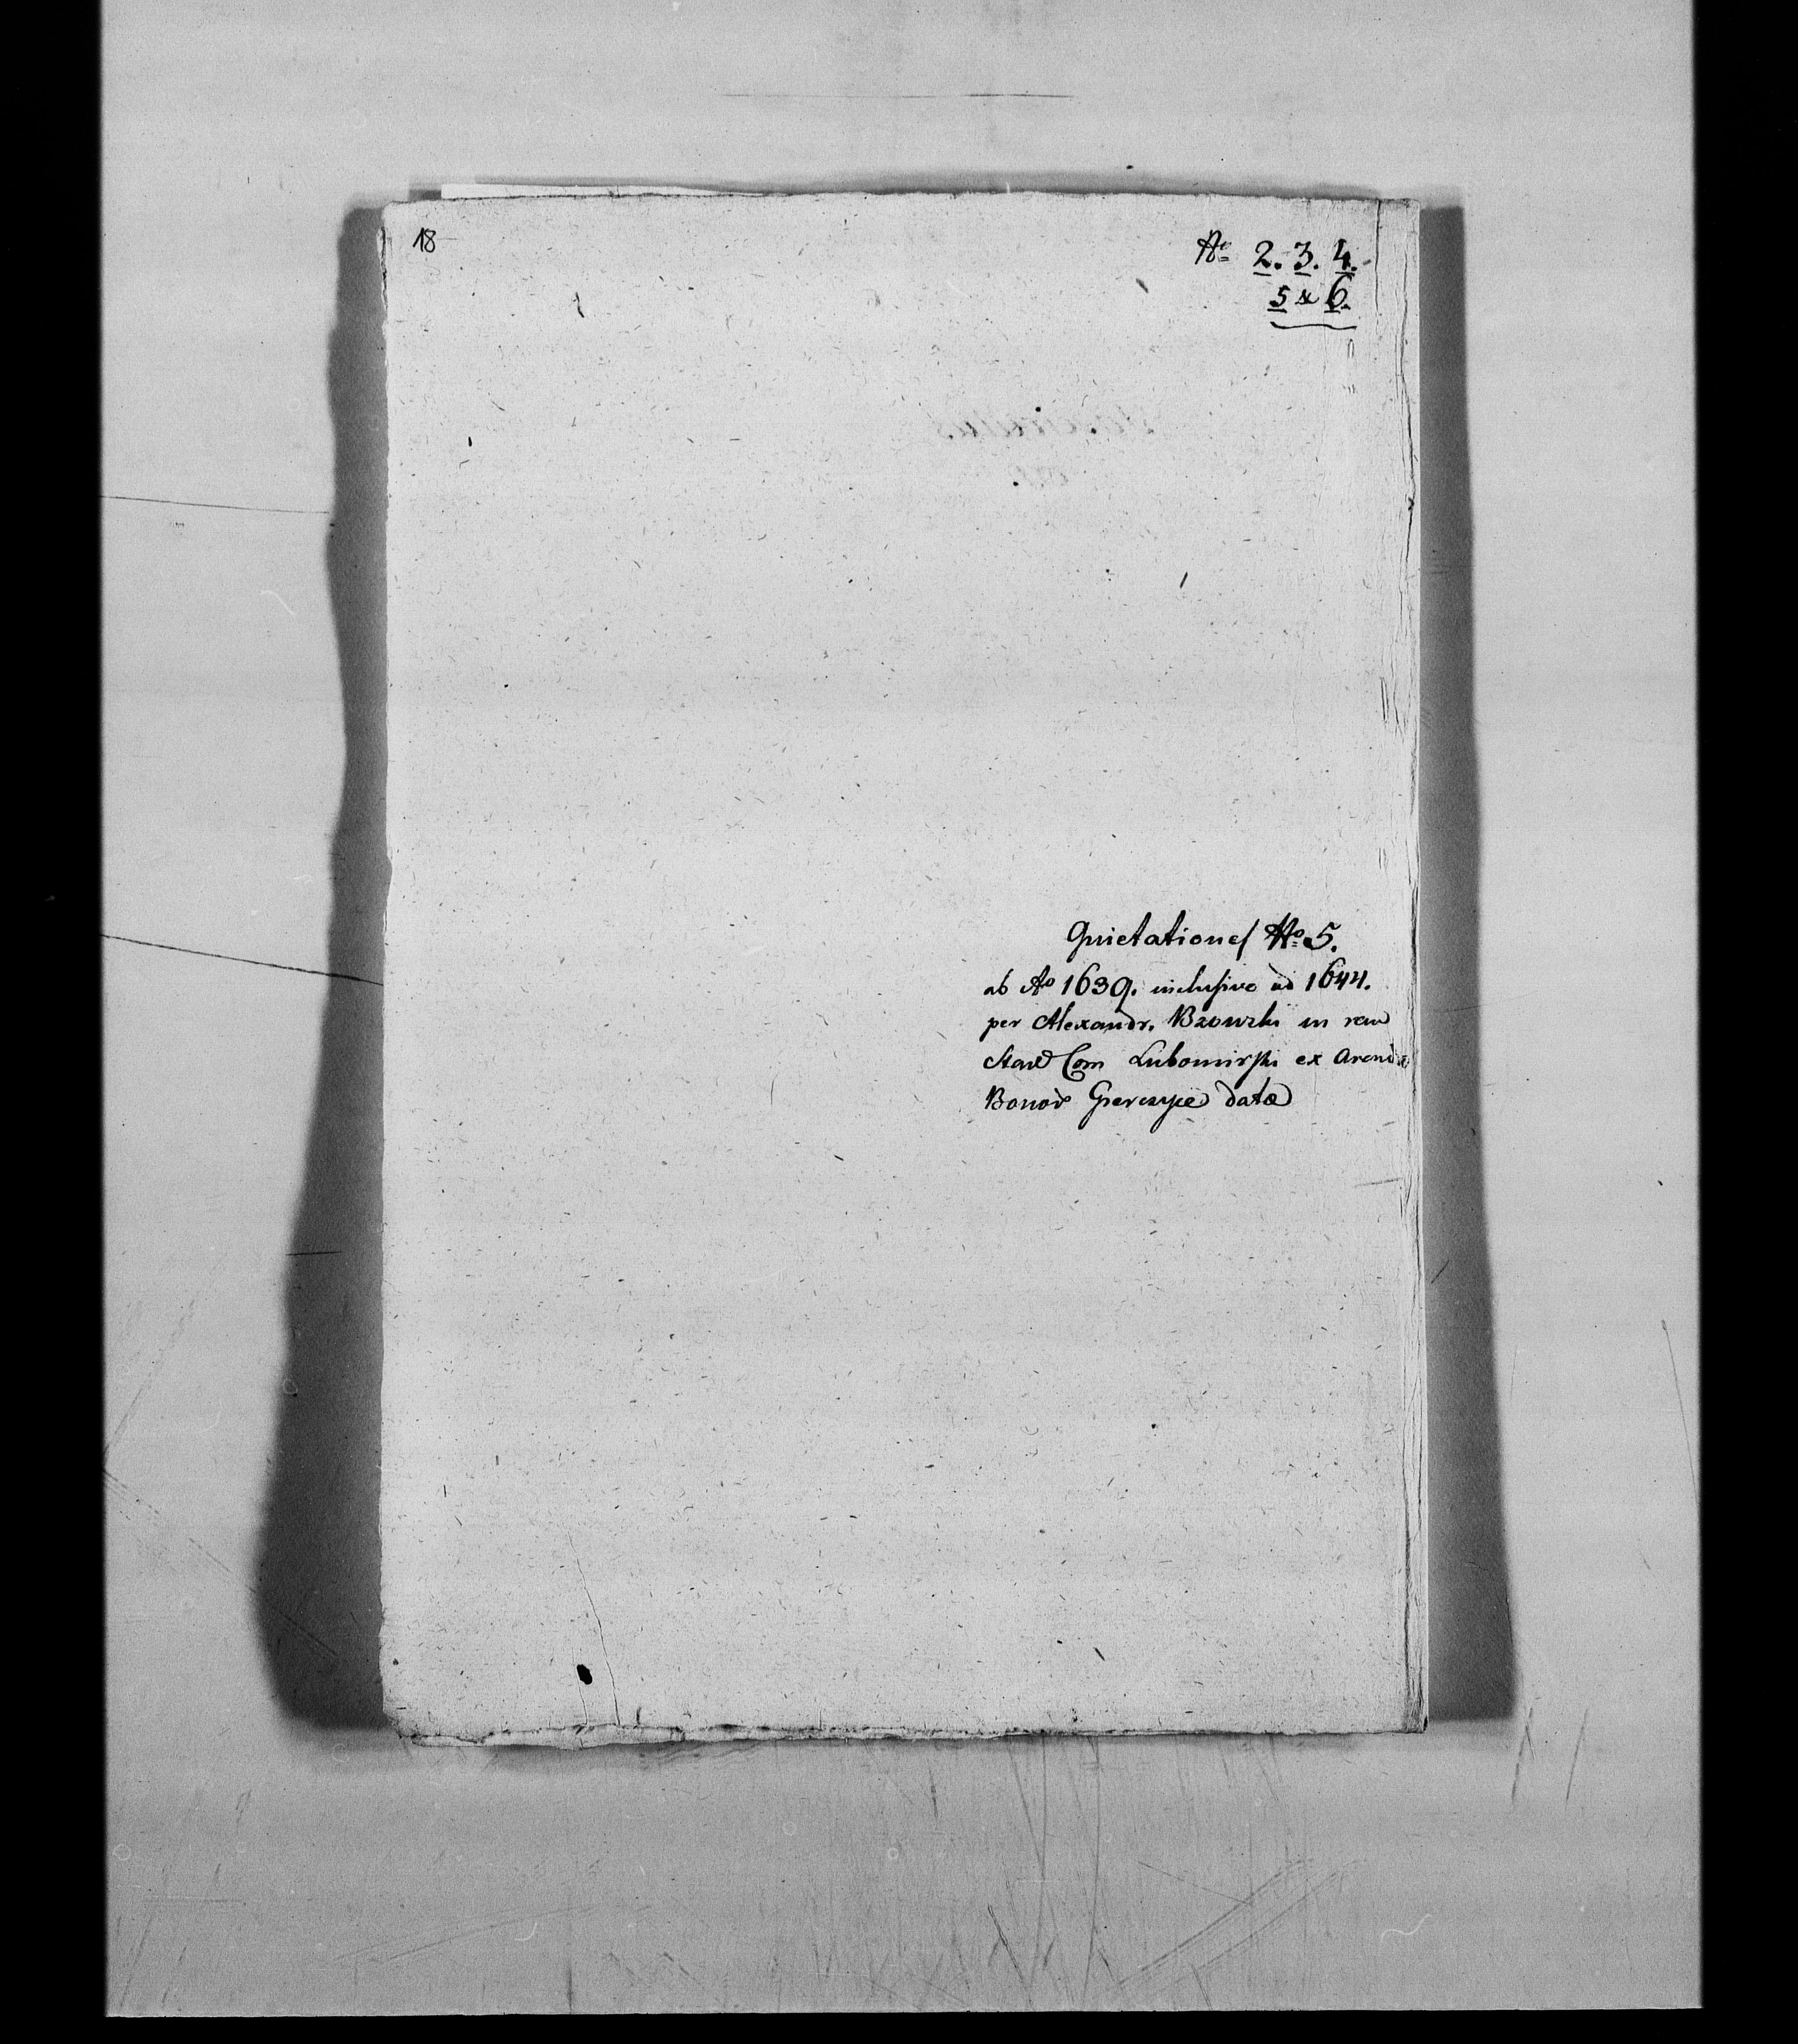 18
No 2. 3. 4.
5 & 6.
Quietationes No 5.
ab Ao 1639. inclusive ad 1644.
per Alexandr. Bzowski in rem
Com Lubomirski ex Arenda
Bonor data